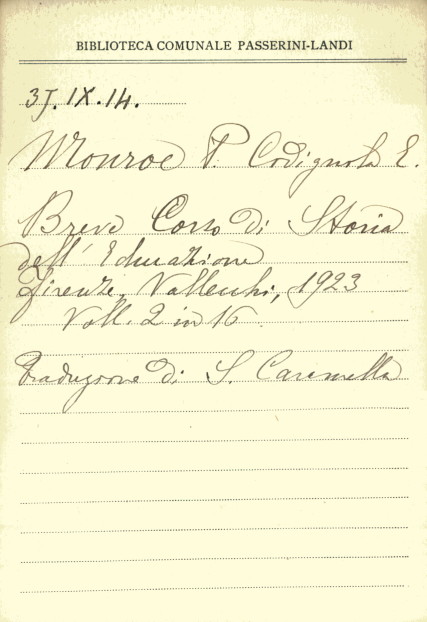 BIBLIOTECA COMUNALE PASSERINI-LANDI
3J. IX. 14.
Monroe P. Codignola E.
Breve Corso di Storia
dell' Educazione
Firenze, Vallecchi, 1923
Voll. 2 in 16.
Traduzione di S. Caramella